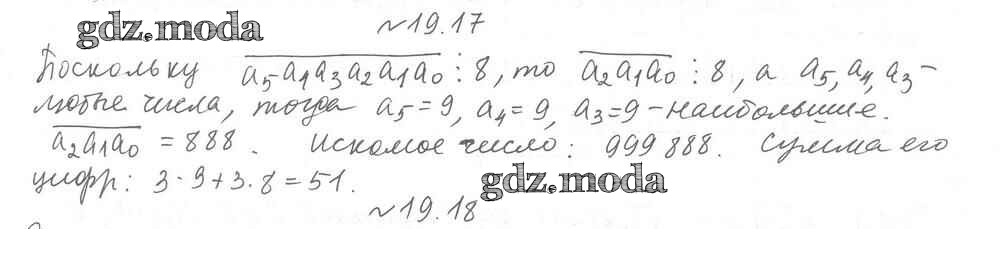 gdz.moda
№19.17
Поскольку a₅a₄a₃a₂a₁a₀ : 8, то a₂a₁a₀ : 8, а a₅, a₄, a₃ –
любые числа, тогда a₅ = 9, a₄ = 9, a₃ = 9 – наибольшие.
a₂a₁a₀ = 888. Искомое число: 999 888. Сумма его
цифр: 3·9+3·8=51.
gdz.moda
№19.18